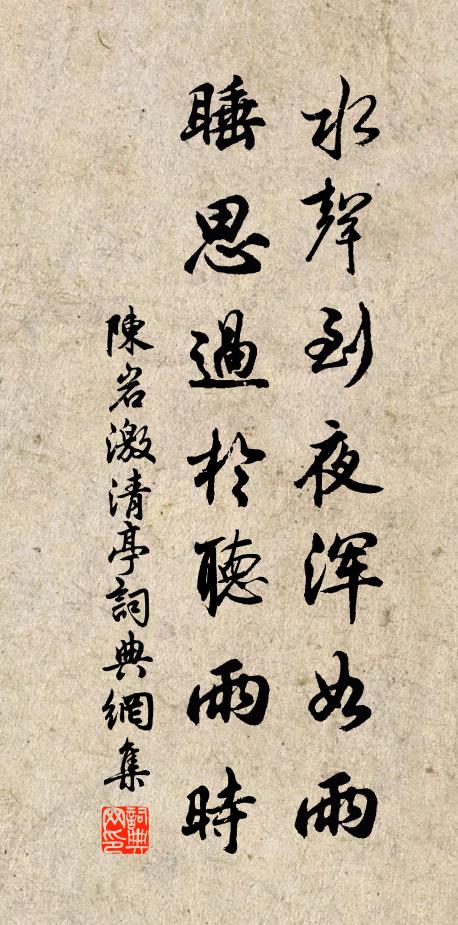 水聲到夜渾如雨
睡思過於聽雨時
陳岩激清亭詞典網集
詞典网印